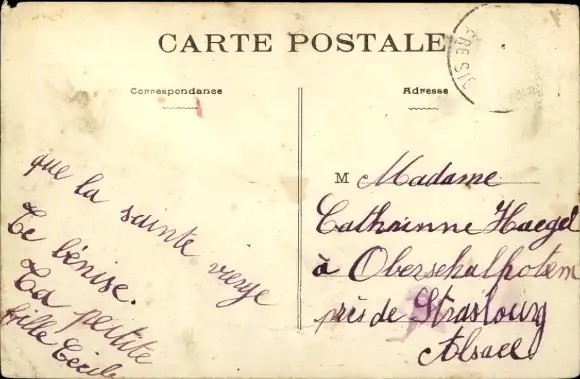 CARTE POSTALE
Correspondance
Adresse
que la sainte vierge
Te bénise.
Ta petite
fille Cécile
M Madame
Cathrinne Haegel
à Oberschalhotzem
près de Strasbourg
Alsace